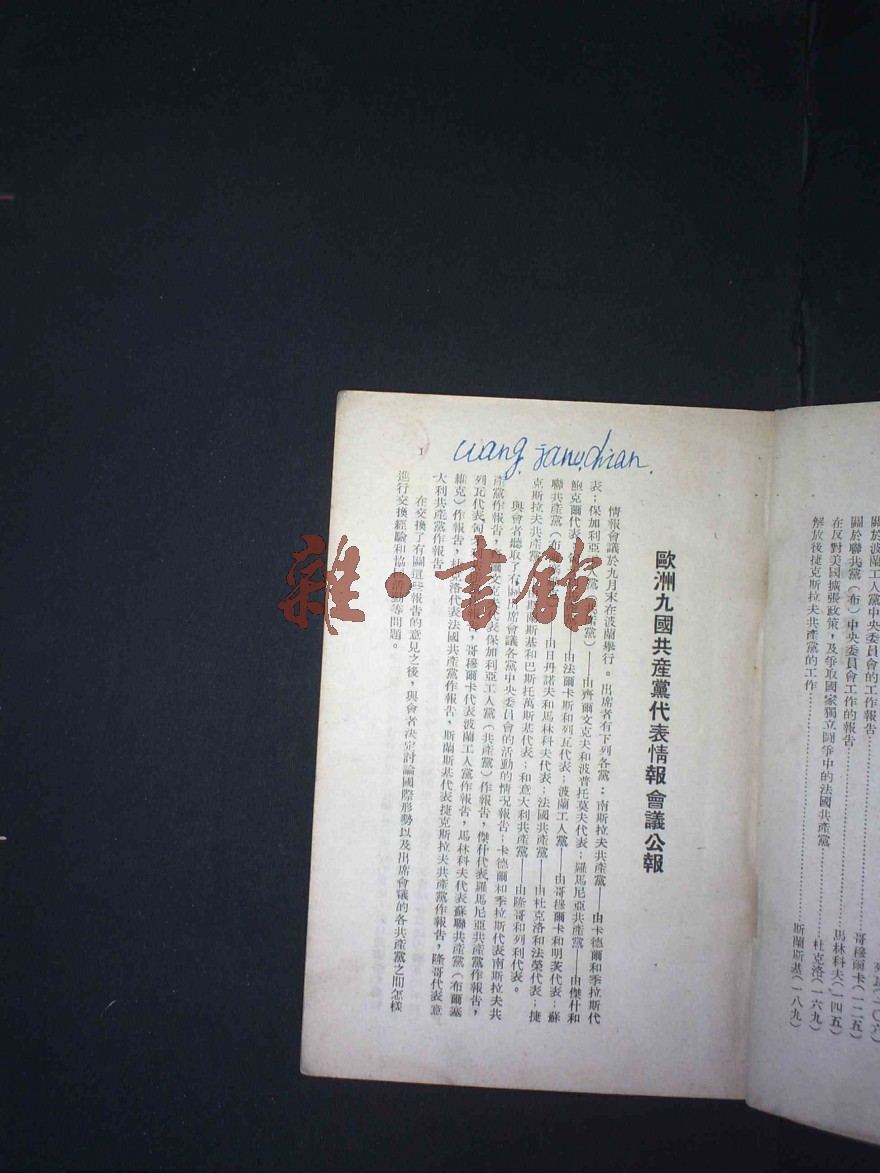 關於波蘭工人黨中央委員會的工作報告……哥穆爾卡(一二五)
關於聯共黨(布)中央委員會工作的報告……馬林科夫(一四五)
在反對美國擴張政策,及爭取國家獨立鬪爭中的法國共產黨……杜克洛(一六九)
解放後捷克斯拉夫共產黨的工作……斯蘭斯基(一八九)
歐洲九國共産黨代表情報會議公報
情報會議於九月末在波蘭舉行。出席者有下列各黨:南斯拉夫共產黨——由卡德爾和季拉斯代
表;保加利亞(共產黨)——由齊爾文克夫和波普托莫夫代表;羅馬尼亞共產黨——由傑什和
鮑克爾代表;——由法爾卡斯和列瓦代表;波蘭工人黨——由哥穆爾卡和明茨代表;蘇
聯共產黨(布——由日丹諾夫和馬林科夫代表;法國共產黨——由杜克洛和法榮代表;捷
克斯拉夫共產黨斯蘭斯基和巴斯托萬斯基代表;和意大利共產黨——由隆哥和列利代表。
與會者聽取了有關出席會議各黨中央委員會的活動的情況報告:卡德爾和季拉斯代表南斯拉夫共
產黨作報告,代表保加利亞工人黨(共產黨)作報告,傑什代表羅馬尼亞共產黨作報告,
列瓦代表匈,哥穆爾卡代表波蘭工人黨作報告,馬林科夫代表蘇聯共產黨(布爾塞
維克)作報告,杜克洛代表法國共產黨作報告,斯蘭斯基代表捷克斯拉夫共產黨作報告,隆哥代表意
大利共產黨作報告
在交換了有關這些報告的意見之後,與會者決定討論國際形勢以及出席會議的各共產黨之間怎樣
進行交換經驗和協等問題。
1
雜·書館